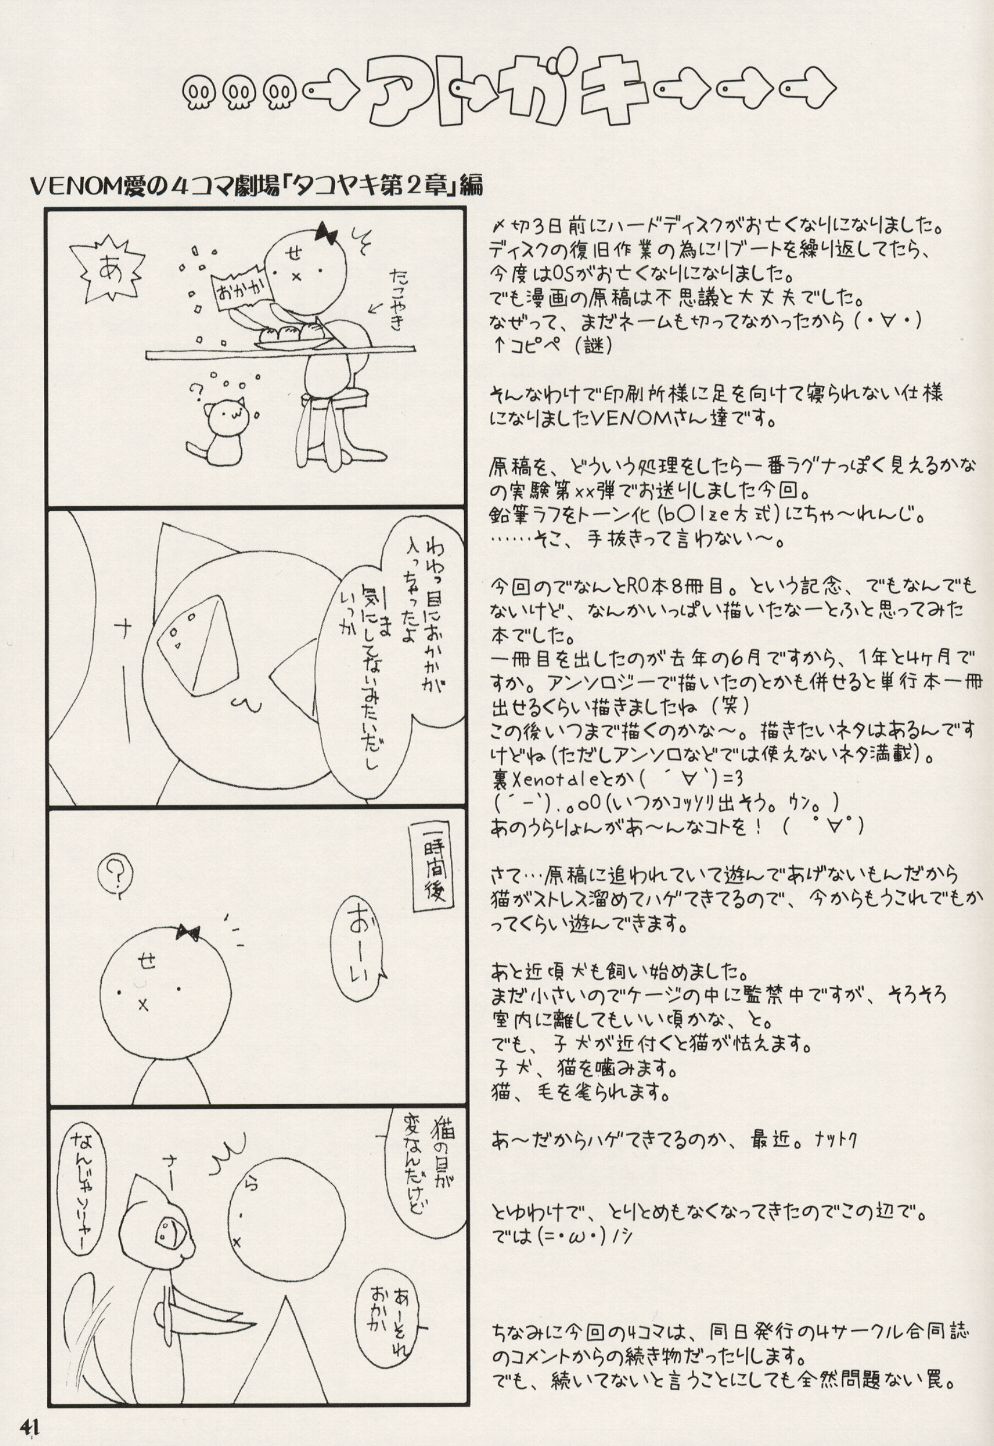 アトガキ
VENOM愛の4コマ劇場「タコヤキ第2章」編
あ
おかか
せ
x
たこやき
?
わわっ目におかかが
入っちゃったよ
ーま
気にしてないみたいだし
いっか
ナ
一時間後
おーい
?
せ
x
猫の目が
変なんだけど
ら
x
ナー
なんじゃソリャー
あーそれ
おかか
〆切3日前にハードディスクがお亡くなりになりました。
ディスクの復旧作業の為にリブートを繰り返してたら、
今度はOSがお亡くなりになりました。
でも漫画の原稿は不思議と大丈夫でした。
なぜって、まだネームも切ってなかったから(・∀・)
↑コピペ(謎)
そんなわけで印刷所様に足を向けて寝られない仕様
になりましたVENOMさん達です。
原稿を、どういう処理をしたら一番ラグナっぽく見えるかな
の実験第xx弾でお送りしました今回。
鉛筆ラフをトーン化(b○lze方式)にちゃ〜れんじ。
……そこ、手抜きって言わない〜。
今回のでなんとRO本8冊目。という記念、でもなんでも
ないけど、なんかいっぱい描いたなーとふと思ってみた
本でした。
一冊目を出したのが去年の6月ですから、1年と4ヶ月で
すか。アンソロジーで描いたのとかも併せると単行本一冊
出せるくらい描きましたね(笑)
この後いつまで描くのかな〜。描きたいネタはあるんです
けどね(ただしアンソロなどでは使えないネタ満載)。
裏Xenotaleとか(´∀`)=3
(´-`).。oO(いつかコッソリ出そう。ウン。)
あのうらりょんがあ〜んなコトを!(゚∀゚)
さて…原稿に追われていて遊んであげないもんだから
猫がストレス溜めてハゲてきてるので、今からもうこれでもか
ってくらい遊んできます。
あと近頃犬も飼い始めました。
まだ小さいのでケージの中に監禁中ですが、そろそろ
室内に離してもいい頃かな、と。
でも、子犬が近付くと猫が怯えます。
子犬、猫を噛みます。
猫、毛を毟られます。
あ〜だからハゲてきてるのか、最近。ナットク
とゆわけで、とりとめもなくなってきたのでこの辺で。
では(=・ω・)ノシ
ちなみに今回の4コマは、同日発行の4サークル合同誌
のコメントからの続き物だったりします。
でも、続いてないと言うことにしても全然問題ない罠。
41